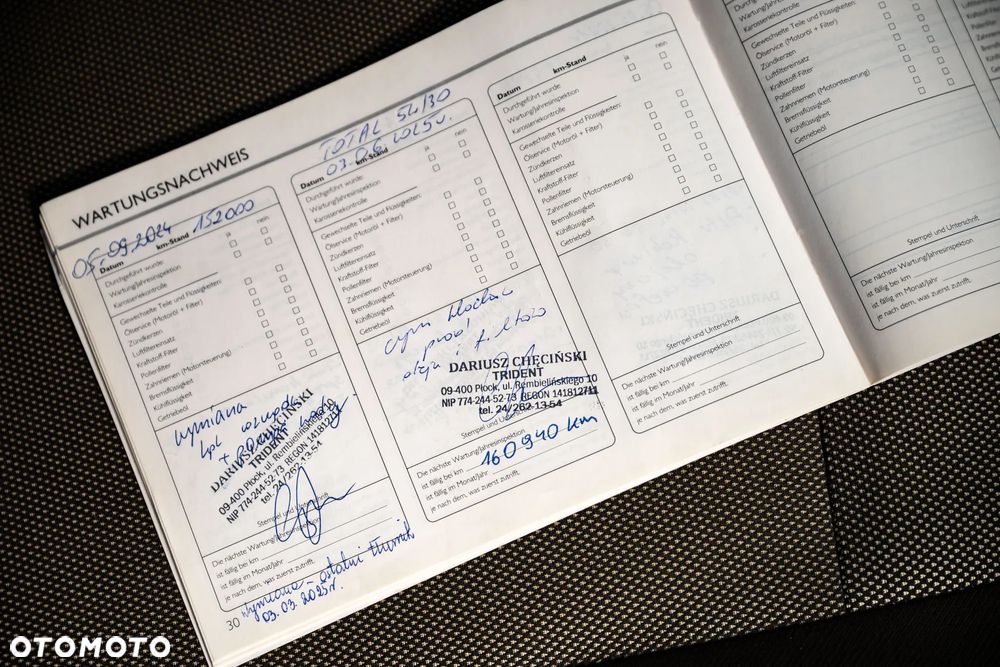 WARTUNGSNACHWEIS
05.09.2024 152000
Datum km-Stand
ja nein
Durchgeführt wurde:
Wartung/Jahresinspektion
Karosseriekontrolle
Gewechselte Teile und Flüssigkeiten:
Ölservice (Motoröl + Filter)
Zündkerzen
Luftfiltereinsatz
Kraftstoff-Filter
Pollenfilter
Zahnriemen (Motorsteuerung)
Bremsflüssigkeit
Kühlflüssigkeit
Getriebeöl
wymiana
kpl. rozrządu
+ pompa wody
DARIUSZ CHĘCIŃSKI
TRIDENT
09-400 Płock, ul. Rembielińskiego 10
NIP 774-244-52-73 REGON 141812711
tel. 24/262-13-54
Stempel und Unterschrift
Die nächste Wartung/Jahresinspektion
ist fällig bei km
ist fällig im Monat/Jahr
je nach dem, was zuerst zutrifft.
wymiana - ostatni tłumik
03.03.2025r.
30
TOTAL 5W30
03.06.2025r.
Datum km-Stand
ja nein
Durchgeführt wurde:
Wartung/Jahresinspektion
Karosseriekontrolle
Gewechselte Teile und Flüssigkeiten:
Ölservice (Motoröl + Filter)
Zündkerzen
Luftfiltereinsatz
Kraftstoff-Filter
Pollenfilter
Zahnriemen (Motorsteuerung)
Bremsflüssigkeit
Kühlflüssigkeit
Getriebeöl
oleju i filtrów
DARIUSZ CHĘCIŃSKI
TRIDENT
09-400 Płock, ul. Rembielińskiego 10
NIP 774-244-52-73 REGON 141812711
tel. 24/262-13-54
Stempel und Unterschrift
Die nächste Wartung/Jahresinspektion
ist fällig bei km 160940 km
ist fällig im Monat/Jahr
je nach dem, was zuerst zutrifft.
Datum km-Stand
ja nein
Durchgeführt wurde:
Wartung/Jahresinspektion
Karosseriekontrolle
Gewechselte Teile und Flüssigkeiten:
Ölservice (Motoröl + Filter)
Zündkerzen
Luftfiltereinsatz
Kraftstoff-Filter
Pollenfilter
Zahnriemen (Motorsteuerung)
Bremsflüssigkeit
Kühlflüssigkeit
Getriebeöl
Stempel und Unterschrift
Die nächste Wartung/Jahresinspektion
ist fällig bei km
ist fällig im Monat/Jahr
je nach dem, was zuerst zutrifft.
Durchgeführt
Wartung/Jahresinspektion
Karosseriekontrolle
Gewechselte Teile und Flüssigkeiten:
Ölservice (Motoröl + Filter)
Zündkerzen
Luftfiltereinsatz
Kraftstoff-Filter
Pollenfilter
Zahnriemen (Motorsteuerung)
Bremsflüssigkeit
Kühlflüssigkeit
Getriebeöl
Stempel und Unterschrift
Die nächste Wartung/Jahresinspektion
ist fällig bei km
ist fällig im Monat/Jahr
je nach dem, was zuerst zutrifft.
OTOMOTO